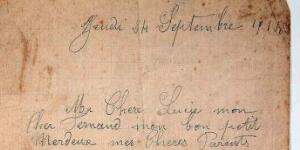 Jeudi 24 Septembre 191
Ma Chere Lucie mon
cher Fernand mon bon petit
Merdeux mes Cheres Parents